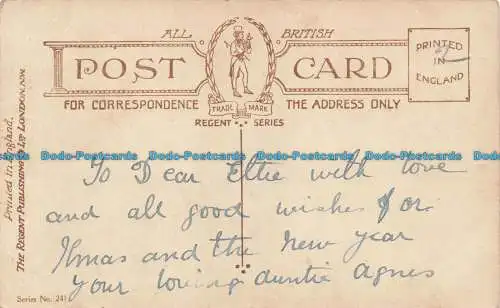 ALL BRITISH
POST CARD
PRINTED
IN
ENGLAND
FOR CORRESPONDENCE THE ADDRESS ONLY
TRADE MARK
REGENT SERIES
Printed in England.
THE REGENT PUBLISHING CO LTD LONDON, N.W.
Dodo-Postcards Dodo-Postcards Dodo-Postcards Dodo-Postcards
To Dear Ettie with love
and all good wishes for
Xmas and the New Year
your loving auntie Agnes
Dodo-Postcards Dodo-Postcards Dodo-Postcards Dodo-Postcards
Series No. 241